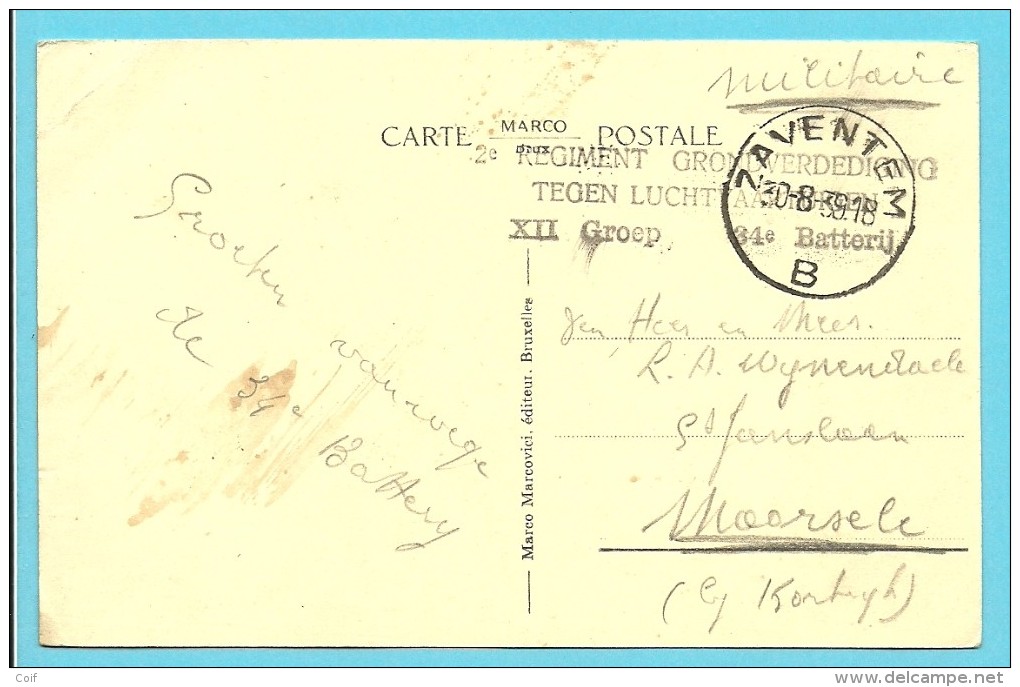 Militaire
CARTE MARCO Brux. POSTALE
2e REGIMENT GRONDVERDEDIGING
TEGEN LUCHTVAARTUIGEN
XII Groep 34e Batterij
ZAVENTEM
30-8 39.18
B
Groeten vanwege
de 34e Battery
Marco Marcovici, éditeur. Bruxelles
Den Heer en Mvrw.
R. A. Wynendaele
St Janslaan
Moorsele
(by Kortryk)
Coif
delcampe.net